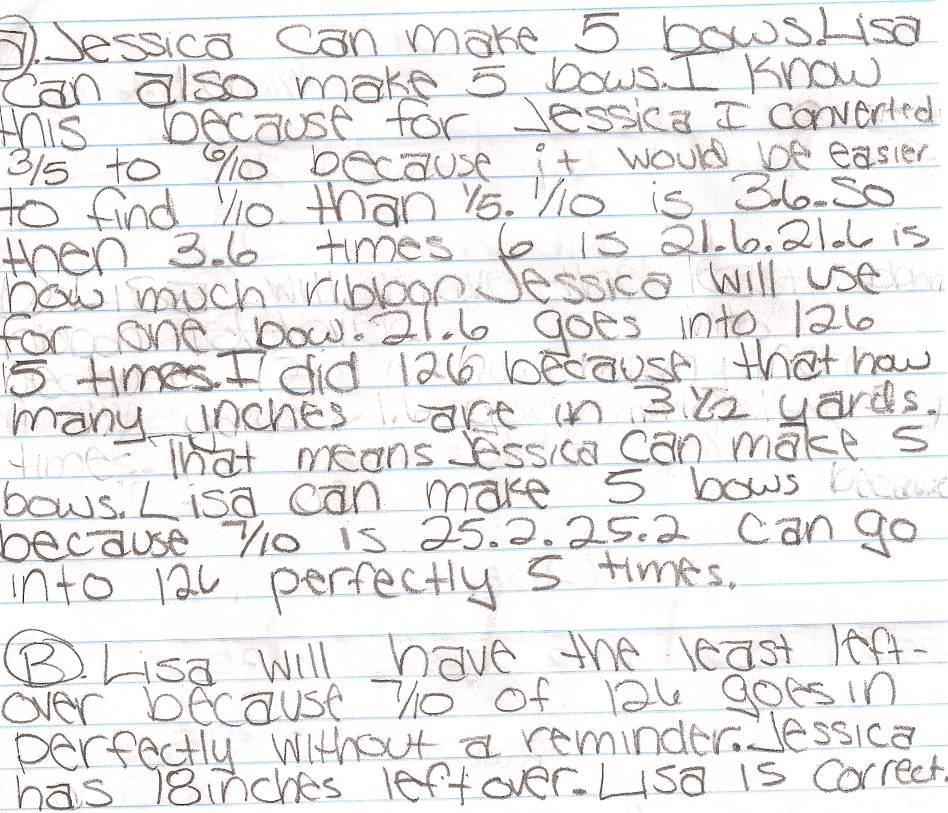 a). Jessica can make 5 bows. Lisa
can also make 5 bows. I know
this because for Jessica I converted
3/5 to 6/10 because it would be easier
to find 1/10 than 1/5. 1/10 is 3.6. So
then 3.6 times 6 is 21.6. 21.6 is
how much ribbon Jessica will use
for one bow. 21.6 goes into 126
5 times. I did 126 because that how
many inches are in 3 1/2 yards.
That means Jessica can make 5
bows. Lisa can make 5 bows
because 7/10 is 25.2. 25.2 can go
into 126 perfectly 5 times.
B). Lisa will have the least left-
over because 7/10 of 126 goes in
perfectly without a reminder. Jessica
has 18 inches left over. Lisa is correct.